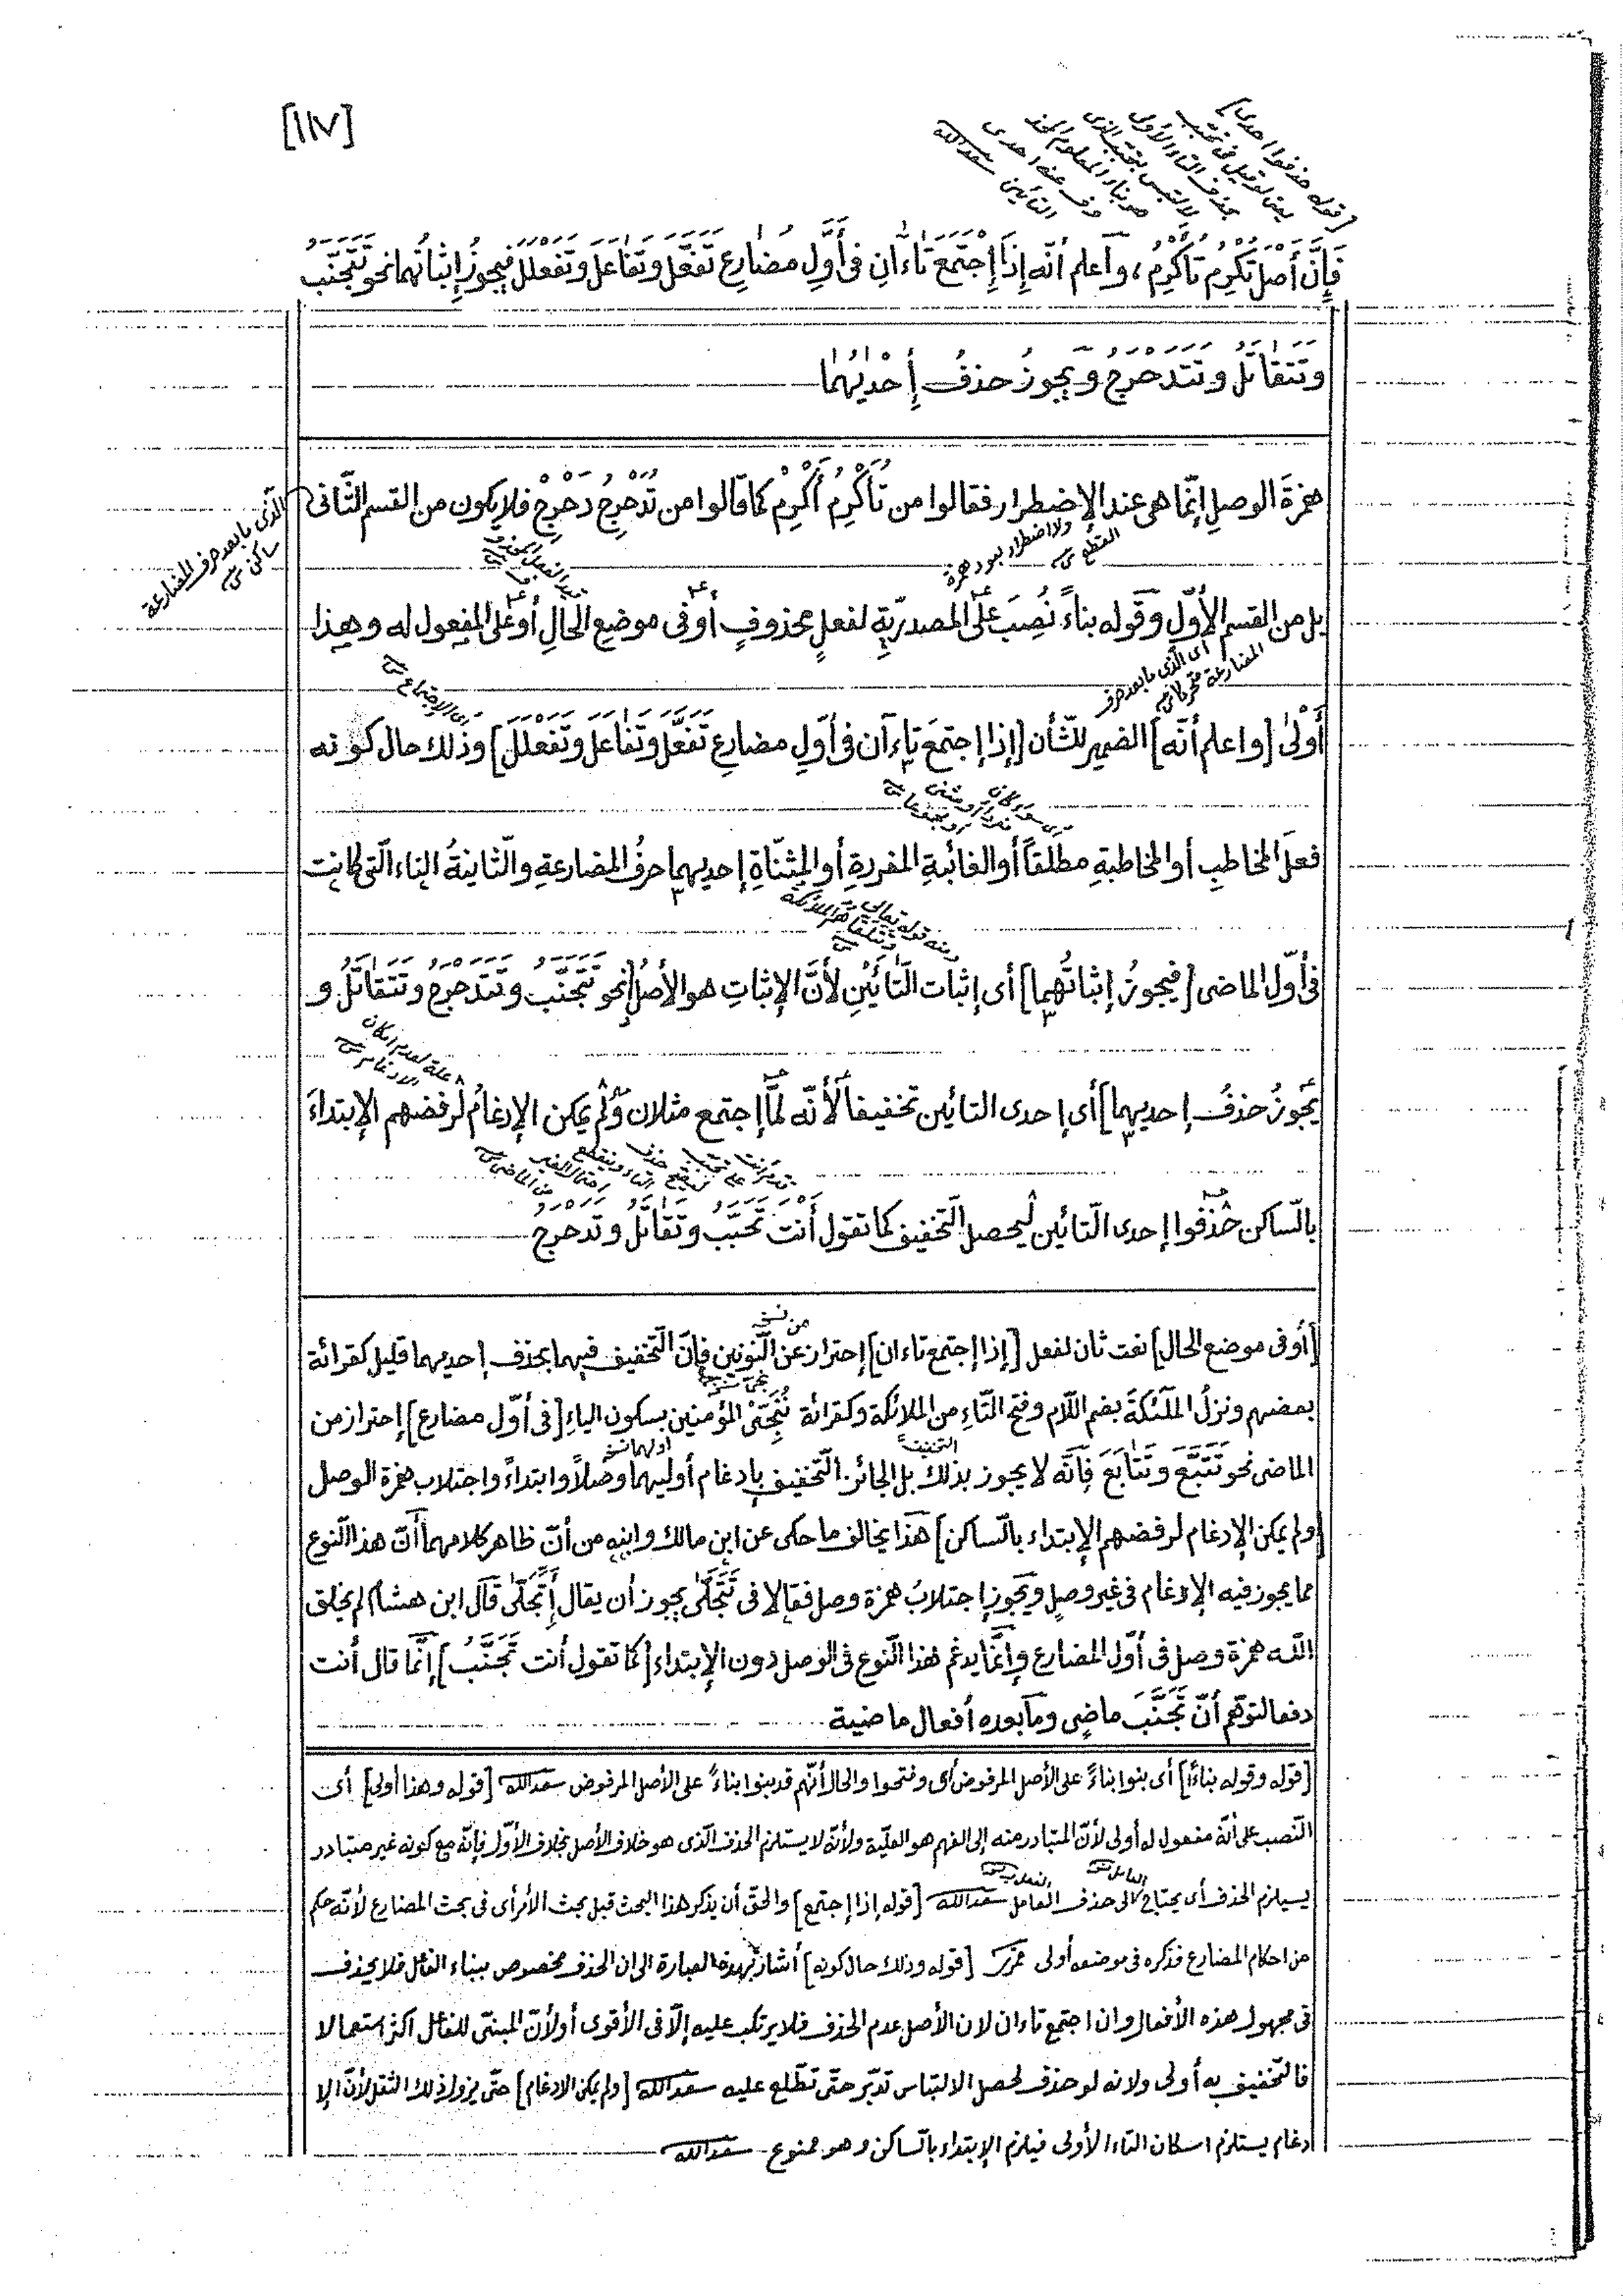 [١١٧]
[قوله حذفوا احدى]
يعنى لو قيل فى تتجنب
بحذف التاء الأولى
لالتبس
هو بناء المعلوم
حرف عنه احدى
التائين سعدالله
فَإِنَّ أَصْلَ تُكْرِمُ تُأَكْرِمُ، وَاعلم أنّه إِذَا إِجْتَمَعَ تَاءَانِ فى أَوَّلِ مضَارِعِ تَفَعَّلَ وَتَفَاعَلَ وَتَفَعْلَلَ فيجوزُ إِثبَاتُهما نحو تَتَجَنَّبُ
وَتَتَقَاتَلُ وَتَتَدَحْرَجُ وَيجوزُ حذفُ إِحْدٰيهُمٰا
همزةَ الوصلِ إنّما هى عند الإضطرار فقالوا من تُأَكْرِمُ أَكْرِمْ كما قالوا من تُدَحْرِجُ دَحْرِجْ فلا يكون من القسم الثّانى
الذّى ما بعد حرف المضارعة
ساكن
ولا اضطرار بعود همزة
القطع
بل من القسم الأوّلِ وقوله بناءً نُصِبَ على المصدريّةِ لفعلٍ محذوفٍ أوفى موضع الحالِ أوعلى المفعول له وهذا
أى الذّى ما بعد حرف
المضارعة متحركا
أَوْلىٰ [واعلم أنّه] الضمير للشّأن [إذا إجتمعَ تاءَآن فى أوّلِ مضارعِ تَفَعَّلَ وَتَفَاعَلَ وَتَفَعْلَلَ] وذلك حال كونه
فعلَ المخاطبِ أو المخاطبةِ مطلقاً أو الغائبةِ المفردةِ أو المثنّاةِ إحديهما حرفُ المضارعةِ والثّانيةُ التاء الّتى كانت
فى أوّل الماضى [فيجوزُ إثباتُهما] أى إثبات التّائَيْنِ لأنَّ الإثباتِ هو الأصلُ [نحو تَتَجَنَّبُ وَتَتَدَحْرَجُ وَتَتَقَاتَلُ و
منه قوله تعالى
وتتلقاهم الملائكة
يجَوزُ حذفُ إحديهما] أى إحدى التائين تخفيفاً لأنّه لمّا إجتمع مثلان ولم يمكن الإدغامُ لرفضهم الإبتداءَ
علة لعدم امكان
الادغام
بالسّاكن حذفوا إحدى التّائين ليحصل التّخفيف كما تقول أَنْتَ تَجَنَّبُ وَتَقَاتَلُ وَتَدَحْرَجُ
[أوفى موضع الحال] نعت ثان لفعل [إذا إجتمع تاءان] إحتراز عن النّونين فإنّ التّخفيف فيهما بحذف إحديهما قليل كقرائة
بعضهم ونزلُ الملٰئكةَ بضم اللّام وفتح التّاءِ من الملائكة وكقرائة نُجِّىْ المؤمنين بسكون الياءِ [فى أوّل مضارع] إحتراز من
الماضى نحو تَتَبَّعَ وَتَتَابَعَ فإنّه لا يجوز بذلك بل الجائز التّخفيف بإدغام أوليهما وصلاً وابتداءً واجتلاب همزة الوصل
[ولم يمكن الإدغام لرفضهم الإبتداء بالسّاكن] هذا يخالف ما حكى عن ابن مالك وابنه من أنّ ظاهر كلامهما أنّ هذا النّوع
مما يجوز فيه الإدغام فى غير وصلٍ ويجوز إجتلابُ همزة وصل فقالا فى تَتَجَلّىٰ يجوز أن يقال إِتَّجَلّىٰ قال ابن هشام لم يخلق
الله همزة وصل فى أوّل المضارع وإنّما يدغم هذا النّوع فى الوصل دون الإبتداء [كما تقول أنت تَجَنَّبُ] إنّما قال أنت
دفعا لتوهّم أنّ تَجَنَّبَ ماضٍى وما بعده أفعال ماضية
[قوله وقوله بناءً] أى بنوا بناءً على الأصل المرفوض أى وفتحوا والحال أنّهم قد بنوا بناءً على الأصل المرفوض سعدالله [قوله وهذا أولى] أى
النّصب على أنّه مفعول له أولى لأنّ المتبادر منه إلى الفهم هو العلّية ولأنّه لا يستلزم الحذف الّذى هو خلاف الأصل بخلاف الأوّل فإنّه مع كونه غير متبادر
يستلزم الحذف أى يحتاج الى حذف العامل سعدالله [قوله إذا إجتمع] والحقّ أن يذكر هذا البحث قبل بحث الأمر أى فى بحث المضارع لأنّه حكم
من احكام المضارع فذكره فى موضعه أولى [قوله وذلك حال كونه] أشار بهذه العبارة الى ان الحذف مخصوص ببناء الفاعل فلا يحذف
فى مجهول هذه الأفعال وان اجتمع تاءان لان الأصل عدم الحذف فلا يرتكب عليه إلّا فى الأقوى أولأنّ المبنى للفاعل اكثر استعمالا
فالتخفيف به أولى ولانه لو حذف لحصل الالتباس تدبّر حتّى تطّلع عليه سعدالله [ولم يمكن الادغام] حتّى يزول ذلك الثقل لأنّ الإ
دغام يستلزم اسكان التاء الأولى فيلزم الإبتداء بالسّاكن وهو ممنوع سعدالله